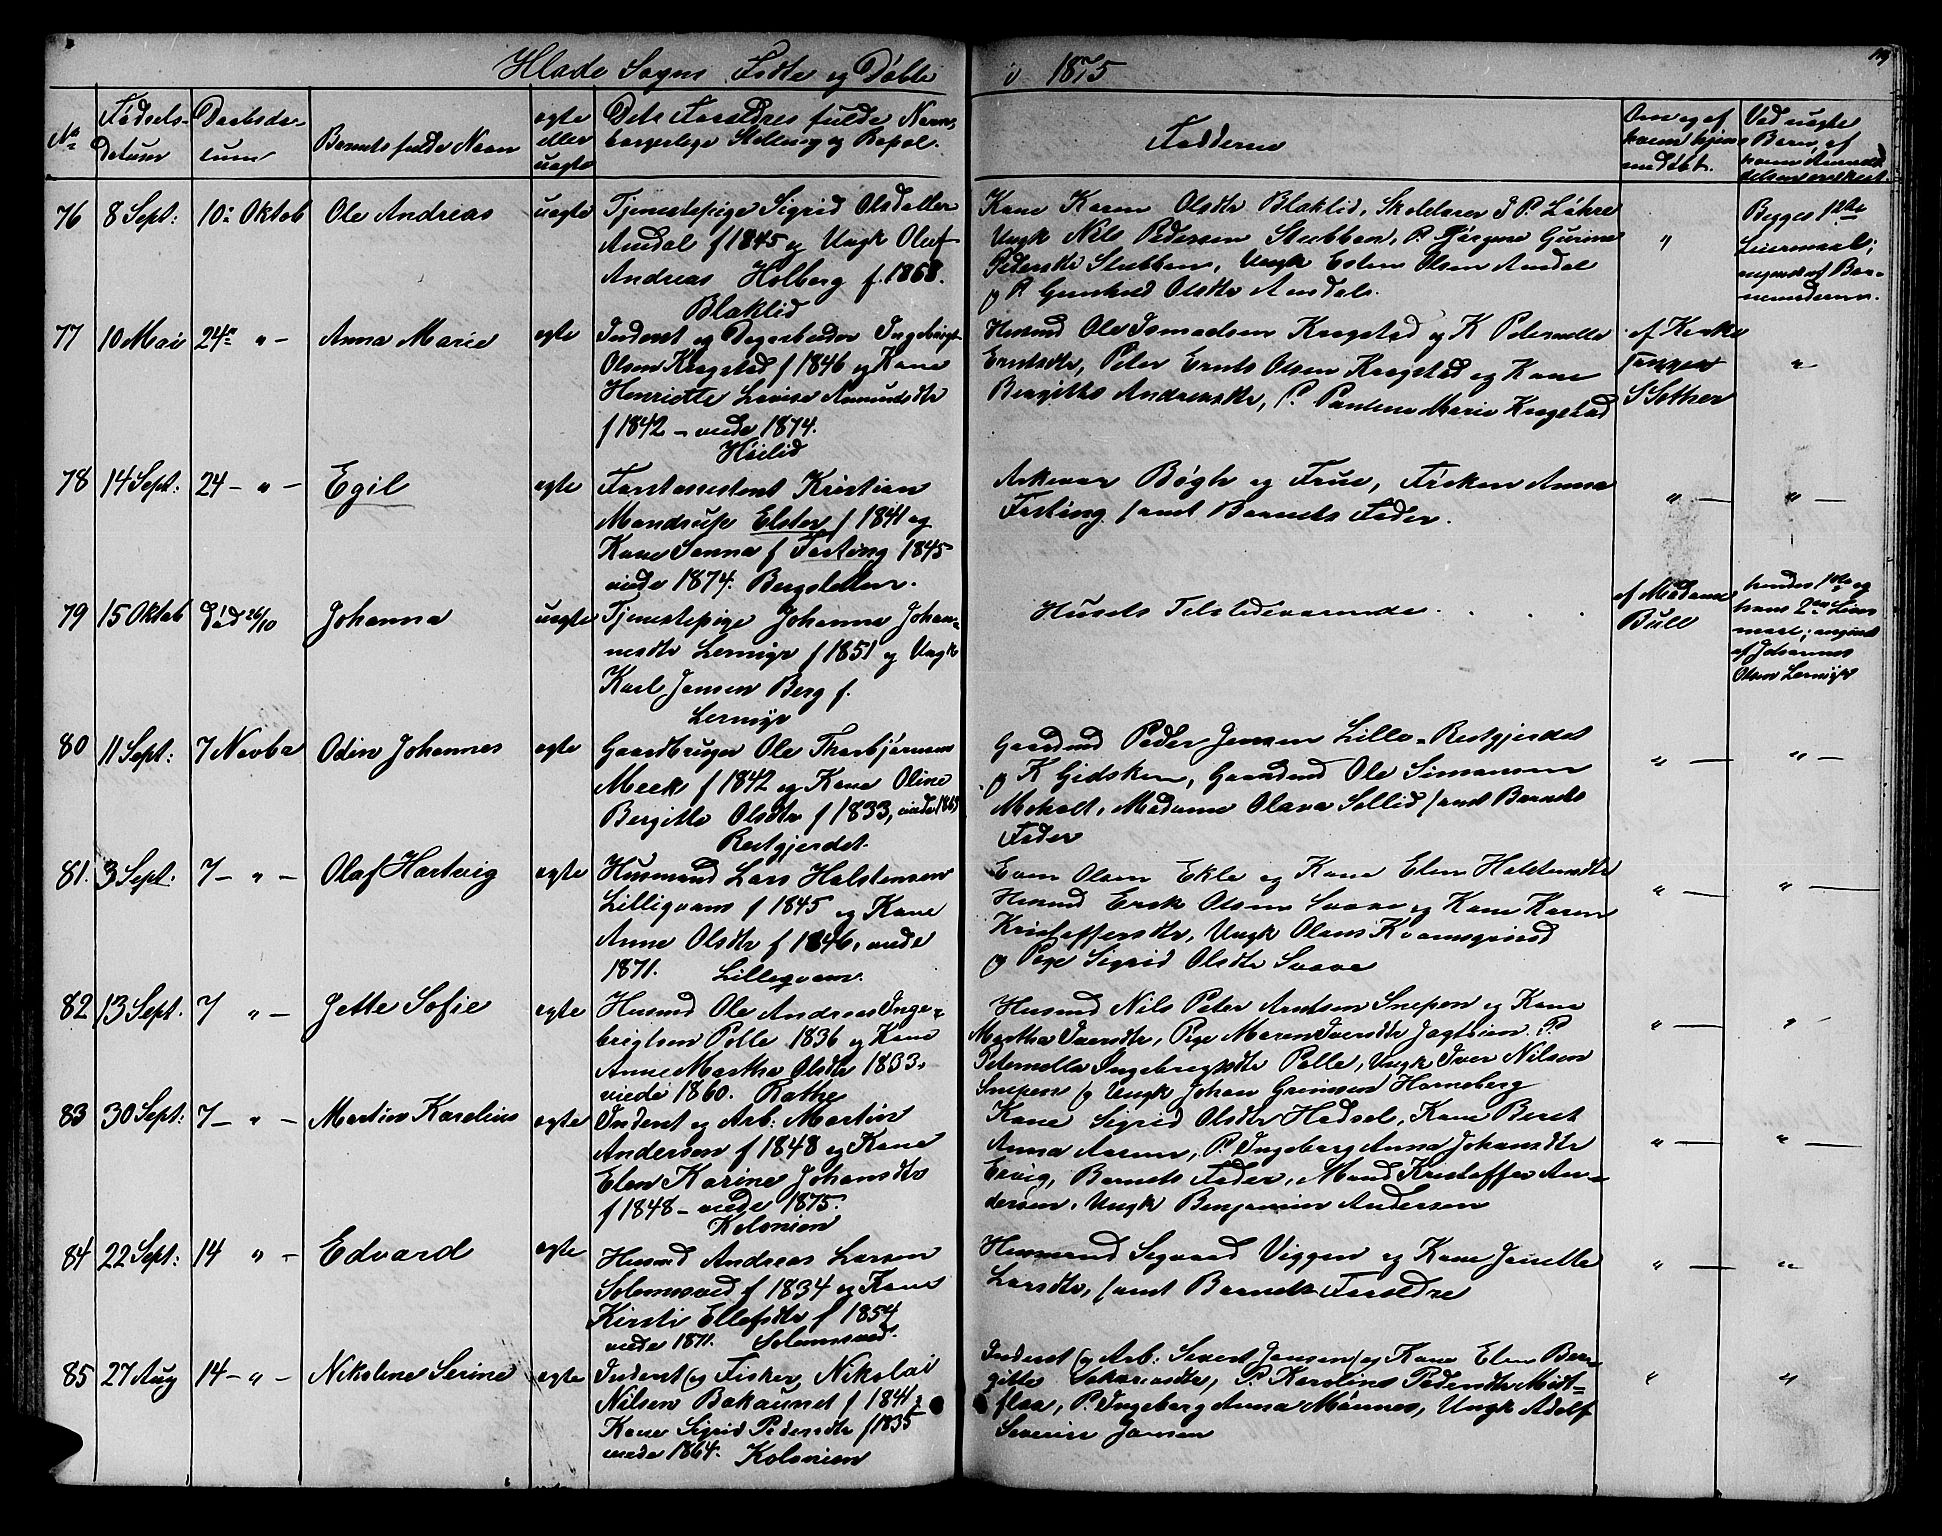 Hlade Sogns Fødte og Døbte i 1875
No
Fødsels-
datum
Daabsda-
tum
Barnets fulde Navn
ægte
eller
uægte
Dets Forældres fulde Navn,
borgerlige Stilling og Bopæl.
Fadderne
Om og af
hvem hjem-
medøbt.
Ved uægte
Børn, af
hvem Anmel-
delsen er skeet.
76 8 Sept: 10: Oktob Ole Andreas uægte Tjenestepige Sigrid Olsdatter
Amdal f 1845 og Ungk Oluf
Andreas Holberg f. 1868.
Blaklid
Kone Karen Olsdtr Blaklid, Skolelærer I P. Løhre
Ungk Nils Pedersen Stubban, P. Jørgine Gurine
Pedersdtr Stubban, Ungk Esten Olsen Amdal
og P Gunhild Olsdtr Amdal.
"
Begges 1ste
Leiermaal;
angivet af Bar-
nemoderen.
77 10 Mai 24 " - Anna Marie ægte Inderst og Dagarbeider Ingebrigt
Olsen Kregstad f 1846 og Kone
Henriette Lovise Amundsdtr
f 1842 - viede 1874.
Høilid
Husmd Ole Kregstad og K Peternelle
Erntsdtr, Peter Ernts Olsen Kregstad og Kone
Bergitte Andreasdtr, P. Pauline Marie Kregstad
af Kirke
Sanger
Sother
"
78 14 Sept: 24 - " - Egil ægte Forstassistent Kristian
Mandrup Elster f 1841 og
Kone Sanna f Fasting 1845
viede 1874. Bergsletten.
Arkivar Bøgh og Frue, Frøken Anna
Fasting samt Barnets Fader.
" - " -
79 15 Oktob Død 26/10 Johanna uægte Tjenestepige Johanna Johan-
nesdtr Lermyr f 1851 og Ungk
Karl Jensen Berg f.
Lermyr
Husets Tilstedeværende.
af Madame
Bull
hendes 1ste og
hans 2den Leier-
maal; angivet
af Johannes
Olsen Lermyr
80 11 Sept: 7 Novbr Odin Johannes ægte Gaardbruger Ole Thorbjørnsen
Meek f 1842 og Kone Oline
Bergitte Olsdtr f 1833, viede 1863
Restgjerdet.
Gaardmd Peder Jensen Lille-Restgjerdet
og K Gidsken, Gaardmd Ole Simonsen
Moholt, Madame Olava Sollid samt Barnets
Fader
" - " -
81. 3 Sept. 7 - " - Olaf Hartvig ægte Husmand Lars Halstensen
Lilleqvam f 1845 og Kone
Anne Olsdtr f 1846, viede
1871. Lilleqvam.
Even Olsen Ekle og Kone Elen Halstensdtr
Husmd Erik Olsen Svave og Kone Karen
Kristoffersdtr, Ungk Olaus Kvamsgrind
og Pige Sigrid Olsdtr Svave
" - " -
82 13 Sept. 7 " - Jette Sofie ægte Husmd Ole Andreas Inge-
brigtsen Polle 1836 og Kone
Anne Martha Olsdtr 1833.
viede 1860. Rathe
Husmd Nils Peter Arntsen Snepen og Kone
Martha Iversdtr, Pige Maren Iversdtr Jagtøien. P.
Peternella Ingebrigtsdtr Polle, Ungk Iver Nilsen
Snepen og Ungk Johan Grimsen Horneberg
" - "
83 30 Sept: 7 - " - Martin Karelius ægte Inderst og Arb: Martin
Andersen f 1848 og Kone
Elen Karine Johansdtr
f 1848 - viede 1875.
Kolonien
Kone Sigrid Olsdtr Hadsel, Kone Beret
Anna Aasen, P. Ingeborg Anna Johansdtr
Ervig, Barnets Fader, Mand Kristoffer An-
dersen, Ungk Benjamin Andersen
" - " -
84 22 Sept: 14 " - Edvard ægte Husmd Andreas Larsen
Solemsved f 1834 og Kone
Kirsti Ellefsdtr f 1854
viede 1871. Solemsved.
Husmand Sivard Viggen og Kone Jenette
Larsdtr, samt Barnets Forældre
" - "
85 27 Aug 14 - " - Nikoline Serine ægte Inderst og Fisker Nikolai
Nilsen Bakaunet f 1841 &
Kone Sigrid Pedersdtr f 1835
viede 1864. Kolonien
Inderst og Arb: Sivert Jensen og Kone Elen Ber-
gitte Sakariasdtr, P. Karoline Pedersdtr Midt-
flaa, P. Ingeborg Anna Mønnes, Ungk Adolf
Severin Jansen
" "